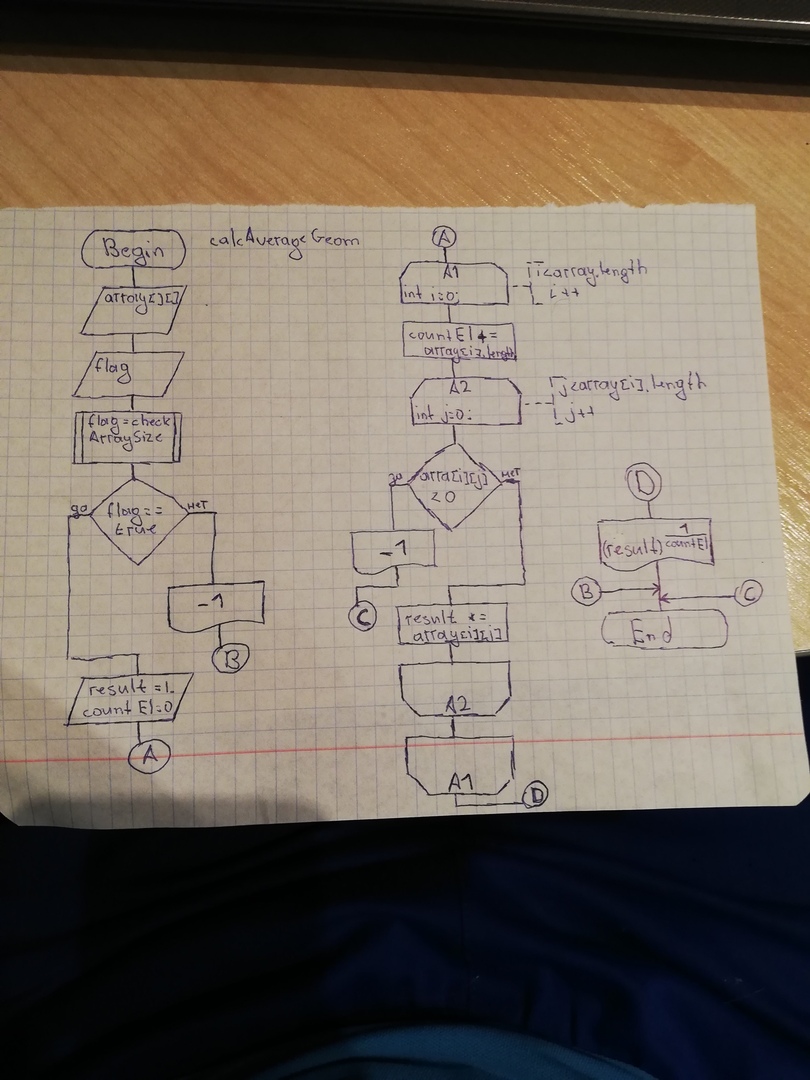 calcAverageGeom
Begin
array[][]
flag
flag=check
ArraySize
да
flag==
true
нет
-1
B
result=1.
countEl=0
A
A
A1
int i=0;
i<array.length
i++
countEl+=
array[i].length
A2
int j=0;
j<array[i].length
j++
да
arra[i][j]
<0
нет
-1
C
result *=
array[i][j]
A2
A1
D
D
(result)
1
countEl
B
C
End